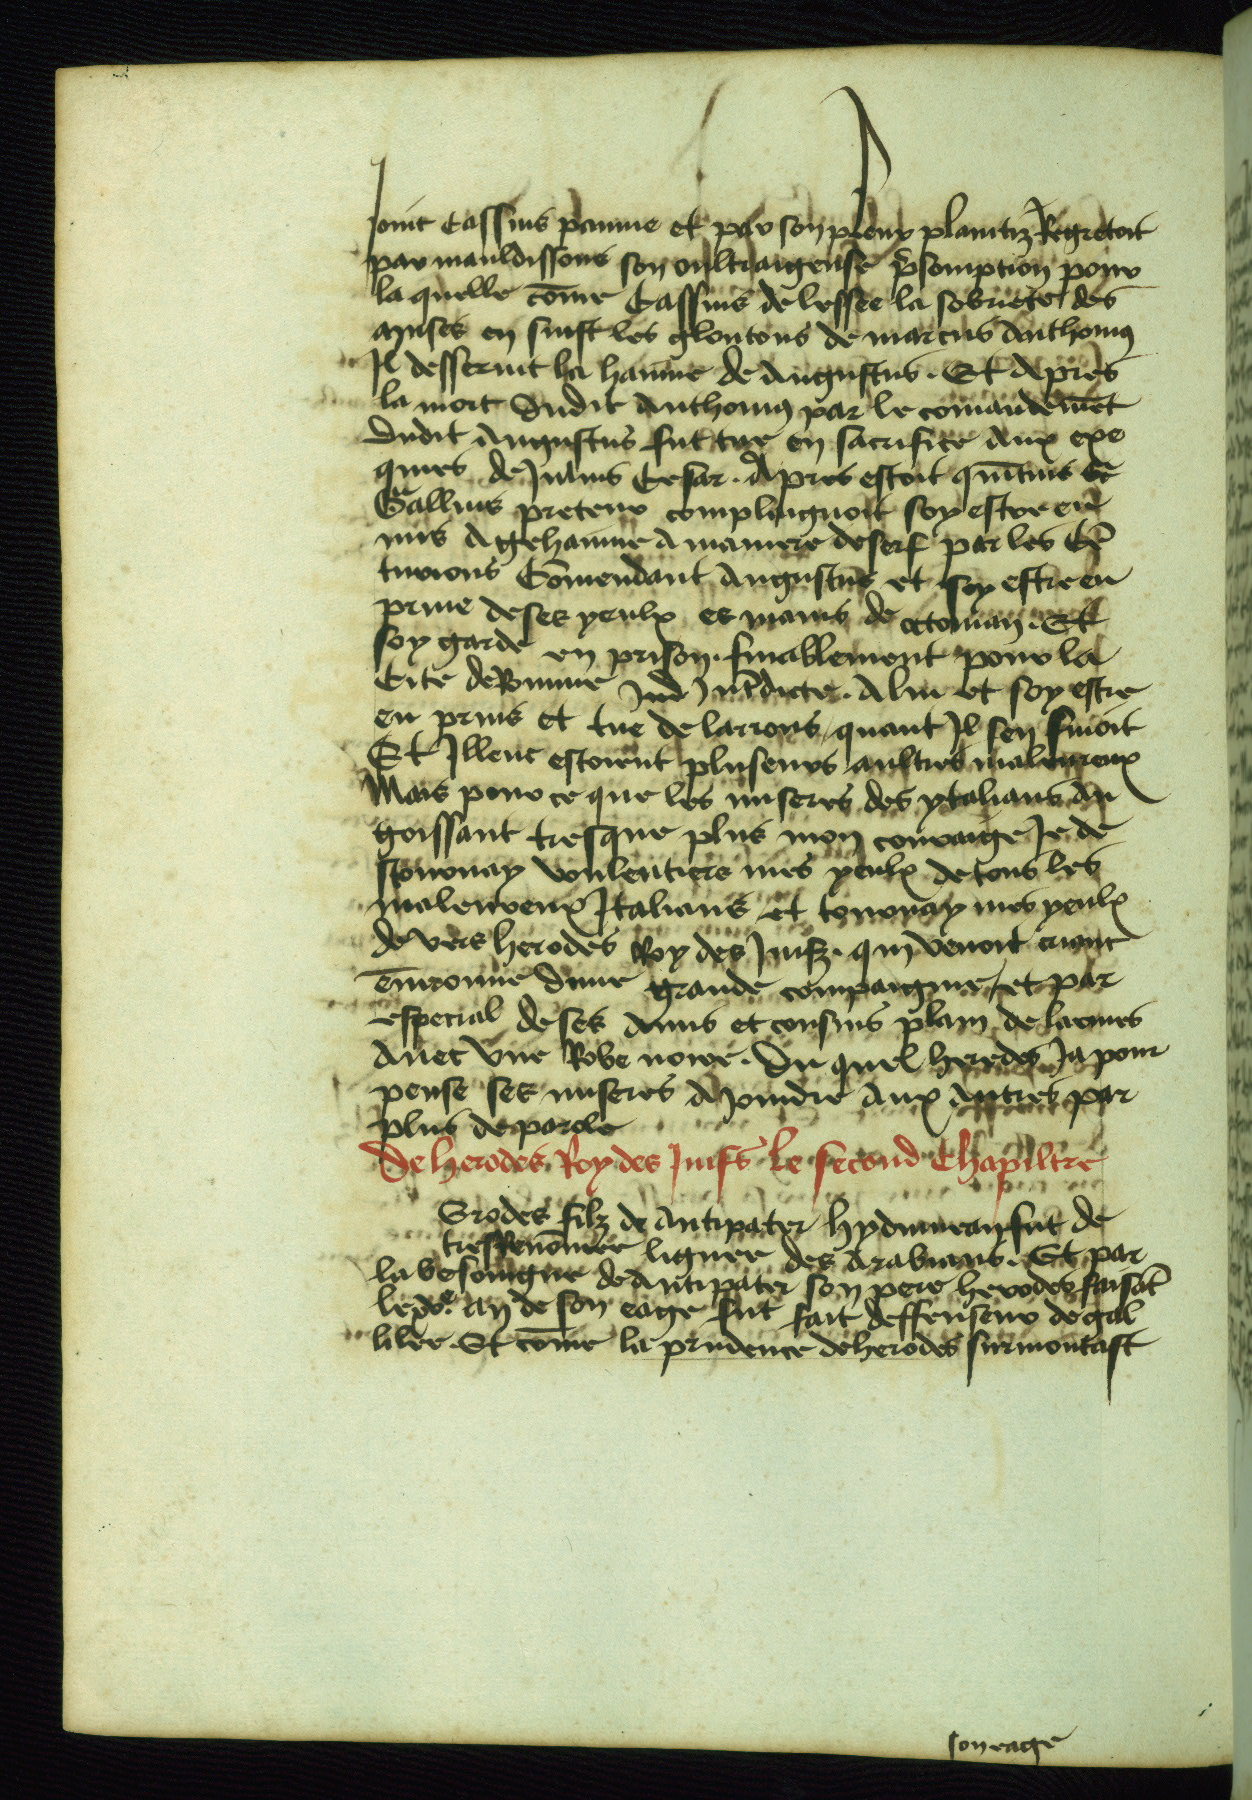 ioint Cassius panme et par son pleur plaintiz Regretoit
par mauldissons son oultraigeuse p̄somption pour
la quelle com̄e Cassius de lessee la sobriete des
amises en suist les gloutons de marcus Anthonius
Il desseruit la hainne de Augustus. Et Apres
la mort dudit Anthonius par le comandemēt
dudit Augustus fut tue en sacrifice aux exe
quies de Julius Cesar. Apres estoit quītius et
Gallius preteur complaignoit soy estre en
mis A gehainne A maniere de serf par les Cē
turions Com̄endant Augustus et soy estre en
priue de ses yeulx es mains de octouian. Et
soy garde en prison. finablement pour la
Cite de Romme Int̄dicte. A lui et soy estre
en prins et tue de larrons quant Il sen fuioit
Et Illenc estoient pluseurs aultres maleureux
Mais pour ce que les miseres des ytalians An
goissant tresque plus mon couraige Je de
stournay voulentiers mes yeulx de tous les
maleureux Italians et tournay mes yeulx
de vers herodes Roy des Juifz. qui venoit criant
en̄uironne dune grande compaignie et par
especial de ses Amis et cousins plain de larmes
Auec vne Robe noire. Du quel herodes Ja pour
pense ses miseres A joindre aux Autres par
plus de parole
De herodes Roy des Juifs Le second Chapiltre
Erodes filz de Antipater hydumean fut de
tresRenom̄ee lignee des Arabians. Et par
la besoingne de Antipater son pere herodes faisāt
le xve. an de son eage fut fait deffenseur de gal
lilee. Et com̄e la prudence de herodes surmontast
son eage